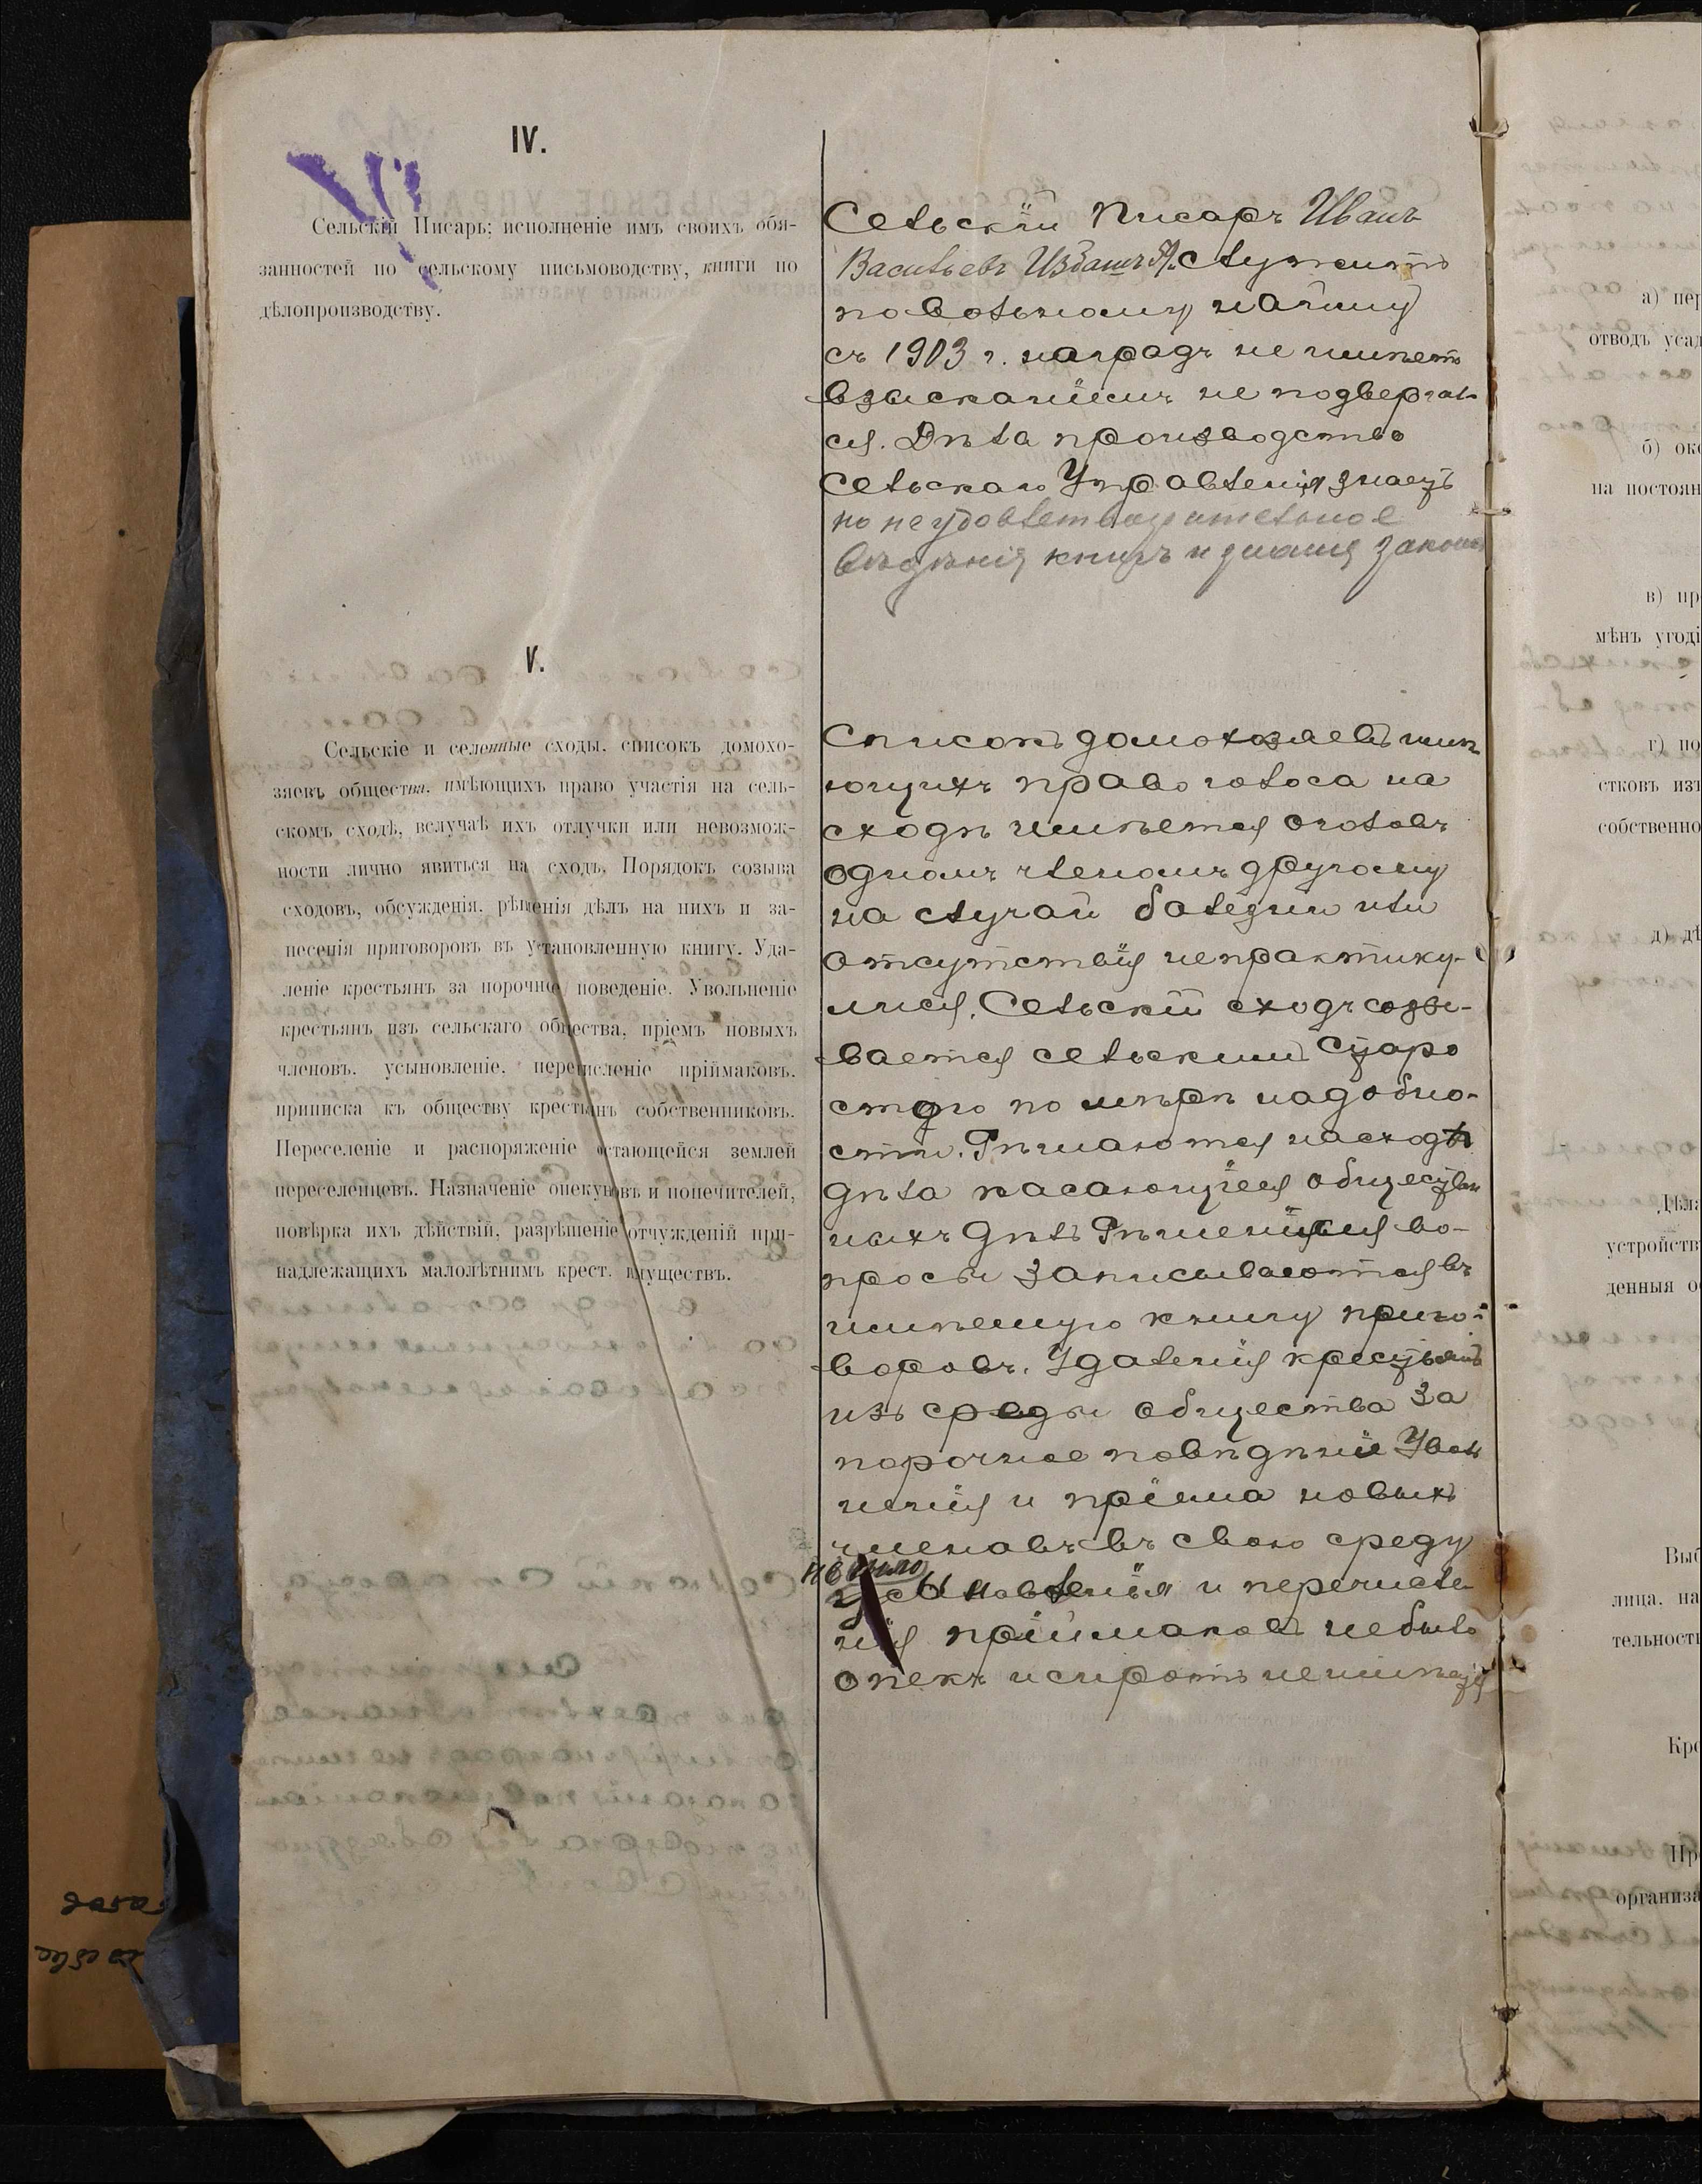 IV.
Сельскій Писарь; исполненіе имъ своихъ обя-
занностей по сельскому письмоводству, книги по
дѣлопроизводству.
Сельскій Писарь Иванъ
Васильевъ служитъ
повольному найму
съ 1903 г. наградъ не имѣетъ
взысканіямъ не подвергал-
ся. Дѣла производство
Сельскаго Управленія знаетъ
но неудовлетворительное
вѣдѣнія книгъ и знанія закона
V.
Сельскіе и селенные сходы, списокъ домохо-
зяевъ общества, имѣющихъ право участія на сель-
скомъ сходѣ, вслучаѣ ихъ отлучки или невозмож-
ности лично явиться на сходъ. Порядокъ созыва
сходовъ, обсужденія, рѣшенія дѣлъ на нихъ и за-
несенія приговоровъ въ установленную книгу. Уда-
леніе крестьянъ за порочное поведеніе. Увольненіе
крестьянъ изъ сельскаго общества, пріемъ новыхъ
членовъ, усыновленіе, перечисленіе пріймаковъ,
приписка къ обществу крестьянъ собственниковъ.
Переселеніе и распоряженіе остающейся землей
переселенцевъ. Назначеніе опекуновъ и попечителей,
повѣрка ихъ дѣйствій, разрѣшеніе отчужденій при-
надлежащихъ малолѣтнимъ крест. имуществъ.
Списокъ домохозяевъ имѣ
ющихъ право голоса на
сходѣ имѣется оголовъ
одномъ членомъ другому
на случай балезни или
отсутствія непрактику-
лися. Сельскій сходъ созы-
вается сельскимъ Старо
стою по мѣрѣ надобно-
сти. Рѣшаются насходѣ
дѣла касающіеся обществен
ныхъ дѣлъ Рѣшеніяся во-
просы записываются въ
имѣемую книгу приго-
воровъ. Удаленія крестьянъ
изъ среды общества за
порочное повѣдѣніе Уволь
ненія и пріема новыхъ
членавъ въ свою среду
не было
усыновленія и перечисле
нія пріймаковъ небыло
опекъ исиротъ неимѣетъ
а) пер
отводъ усад
б) око
на постоян
в) пр
мѣнъ угоді
г) по
стковъ изъ
собственно
д) дѣ
Дѣла
устройств
денныя о
Выб
лица, на
тельность
Кро
Пр
организа